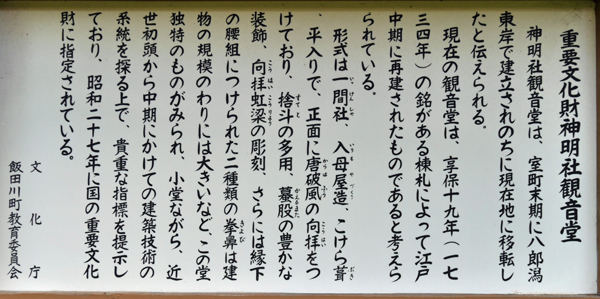 重要文化財神明社観音堂
神明社観音堂は、室町末期に八郎潟
東岸で建立されのちに現在地に移転し
たと伝えられる。
現在の観音堂は、享保十九年（一七
三四年）の銘がある棟札によって江戸
中期に再建されたものであると考えら
れている。
形式は一間社、入母屋造、こけら葺
、平入りで、正面に唐破風の向拝をつ
けており、捨斗の多用、蟇股の豊かな
装飾、向拝虹梁の彫刻、さらには縁下
の腰組につけられた二種類の拳鼻は建
物の規模のわりには大きいなど、この堂
独特のものがみられ、小堂ながら、近
世初頭から中期にかけての建築技術の
系統を探る上で、貴重な指標を提示し
ており、昭和二十七年に国の重要文化
財に指定されている。
文化庁
飯田川町教育委員会